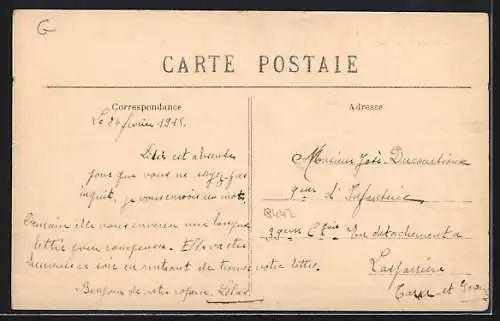 G
CARTE POSTALE
Correspondance
Le 24 février 1915.
est absente
pour que vous ne soyez pas
inquiet, je vous envoie un mot.
Demain elle vous enverra une longue
lettre pour compenser. Elle va être
heureuse ce soir en rentrant de trouver votre lettre.
Bonjour de votre copine, Lilas
Adresse
Monsieur José
9em d'Infanterie
Cgnie En détachement à
Tarn et